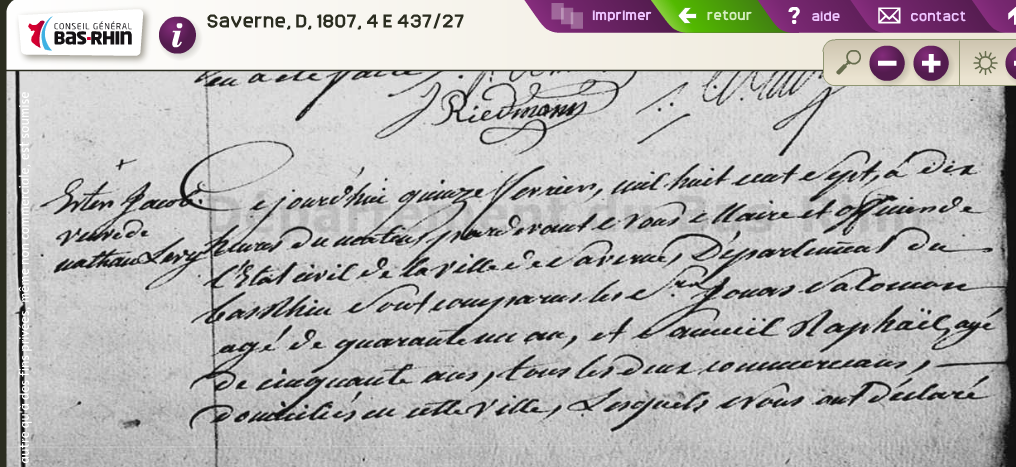 CONSEIL GÉNÉRAL
BAS-RHIN
Saverne, D, 1807, 4 E 437/27
imprimer
retour
aide
contact
Riedmann
Ester Jacob
veuve de
nathan Levy
Cejourd'hui quinze fevrier, mil huit cent Sept, à dix
heures du matin, pardevant Nous Maire et officier de
l'Etat civil de la ville de Saverne, Département du
basRhin Sont comparus les Srs Jonas Salomon
agé de quarante un an, et Samuël Raphaël, agé
de cinquante ans, tous les deux commercans,
domiciliés en cette Ville, Lesquels Nous ont déclaré
Département du Bas-Rhin
autre qu'à des fins privées, même non commerciale, est soumise